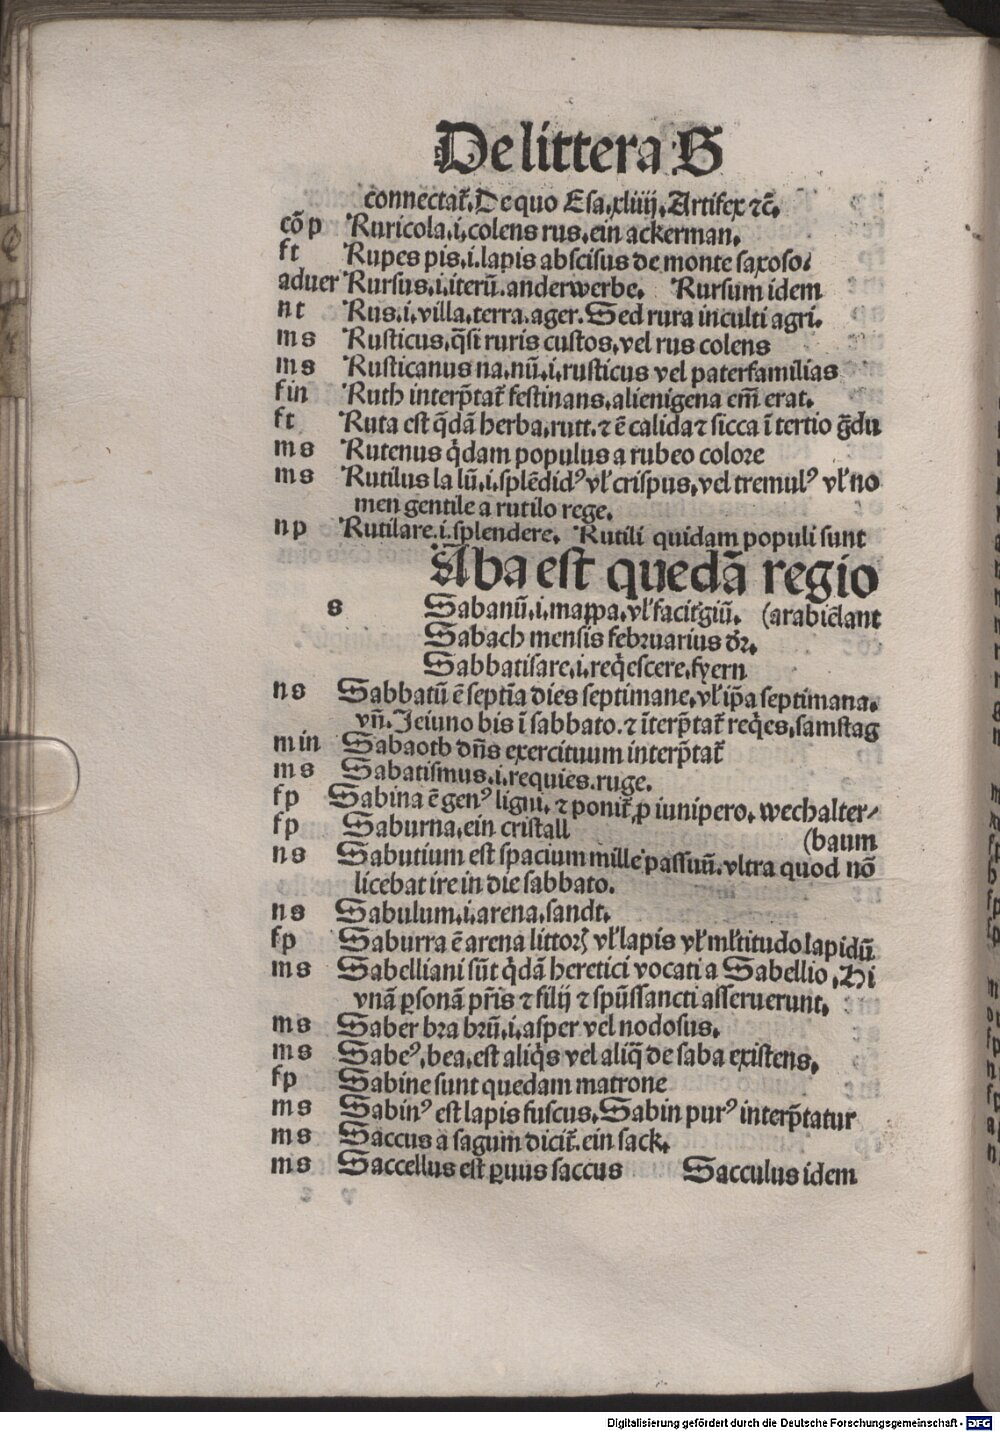 De littera S
connectat᷑. De quo Esa. xliiij. Artifex ⁊c̃.
cõ p Ruricola .i. colens rus. ein ackerman.
f t Rupes pis .i. lapis abscisus de monte saxoso.
aduer Rursus .i. iterũ. anderwerbe. Rursum idem
n t Rus .i. villa. terra. ager. Sed rura inculti agri.
m s Rusticus. q̃si ruris custos. vel rus colens
m s Rusticanus na. nũ .i. rusticus vel paterfamilias
f in Ruth interp̃tat᷑ festinans. alienigena em̃ erat.
f t Ruta est q̃dã herba. rutt. ⁊ ẽ calida ⁊ sicca ĩ tertio g̃du
m s Rutenus q̇dam populus a rubeo colore
m s Rutilus la lũ .i. splẽdidꝰ vl̓ crispus. vel tremulꝰ vl̓ no
men gentile a rutilo rege.
n p Rutilare .i. splendere. Rutili quidam populi sunt
Aba est quedã regio
s Sabanũ .i. mappa. vl̓ facit̓giũ. (arabie᷑ lant
Sabach mensis februarius dr̃.
Sabbatisare .i. req̇escere. fyern
n s Sabbatũ ẽ septĩa dies septimane. vl̓ ip̃a septimana.
vñ. Ieiuno bis ĩ sabbato. ⁊ ĩterp̃tat᷑ req̇es. samstag
m in Sabaoth dñs exercituum interp̃tat᷑
m s Sabatismus .i. requies. ruge.
f p Sabina ẽ genꝰ ligni. ⁊ ponit᷑ ꝓ iunipero. wechalter⸗
f p Saburna. ein cristall (baum
n s Sabutium est spacium mille passuũ. vltra quod nõ
licebat ire in die sabbato.
n s Sabulum .i. arena. sandt.
f p Saburra ẽ arena littoꝝ vl̓ lapis vl̓ ml̓titudo lapidũ
m s Sabelliani sũt q̇dã heretici vocati a Sabellio. Hi
vnã ꝑsonã pr̃is ⁊ filij ⁊ spũssancti asseruerunt.
m s Saber bra brũ .i. asper vel nodosus.
m s Sabeꝰ. bea. est aliq̇s vel aliq̃ de saba existens.
f p Sabine sunt quedam matrone
m s Sabinꝰ est lapis fuscus. Sabin purꝰ interp̃tatur
m s Saccus a sagum dicit᷑. ein sack.
m s Saccellus est ꝑuus saccus Sacculus idem
Digitalisierung gefördert durch die Deutsche Forschungsgemeinschaft - DFG